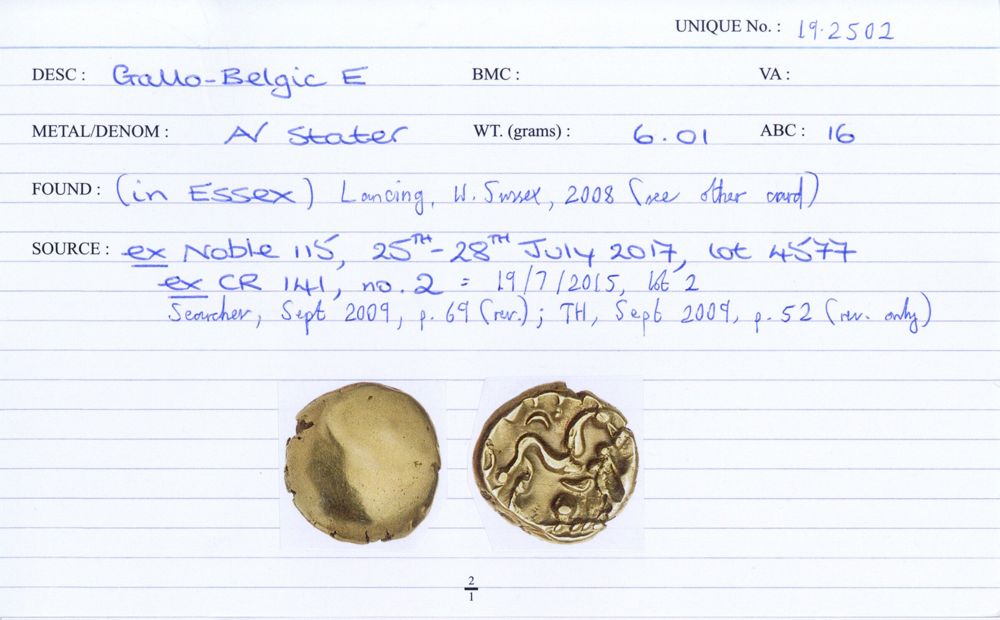 UNIQUE No. : 19.2502
DESC : Gallo-Belgic E BMC : VA :
METAL/DENOM : AV Stater WT. (grams) : 6.01 ABC : 16
FOUND : (in Essex) Lancing, W. Sussex, 2008 (see other card)
SOURCE : ex Noble 115, 25TH-28TH July 2017, lot 4577
ex CR 141, no. 2 = 19/7/2015, lot 2
Searcher, Sept 2009, p. 69 (rev.); TH, Sept 2009, p. 52 (rev. only)
2
1